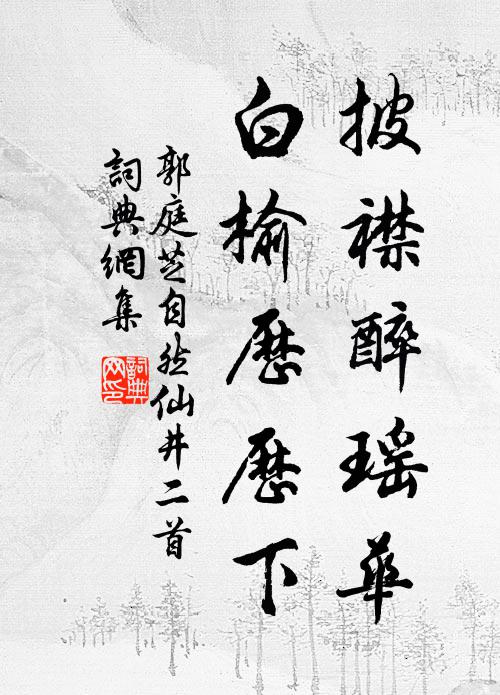 披襟醉瑶華
白榆歷歷下
郭庭芝自然仙井二首
詞典網集
詞典网印